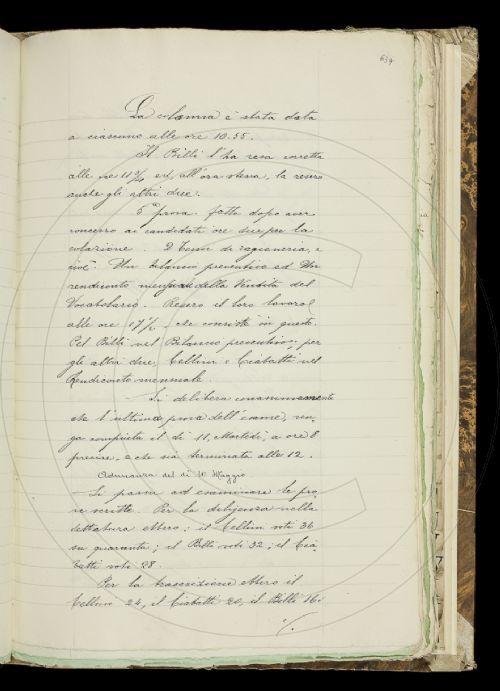 639
La colonna è stata data
a ciascuno alle ore 10.55.
Il Billi l'ha resa corretta
alle ore 11 ed, all'ora stessa, la resero
anche gli altri due.
5ª prova. fatta dopo aver
concesso ai candidati ore due per la
colazione. 2 Temi di ragioneria, e
cioè Un bilancio preventivo ed Un
rendiconto mensile della Vendita del
Vocabolario. Resero il loro lavoro
alle ore 17 che consistè in questo.
Pel Billi nel Bilancio preventivo; per
gli altri due, Cellini e Ciabatti nel
Rendiconto mensuale.
Si delibera unanimemente
che l'ultima prova dell'esame, ven-
ga compiuta il dì 11, Martedì, a ore 8
precise, e che sia terminata alle 12.
Adunanza del dì 10 Maggio
Si passa ad esaminare le pro-
ve scritte. Per la diligenza nella
dettatura ebbero: il Cellini voti 36
su quaranta; il Billi voti 32; il Cia-
batti voti 28.
Per la trascrizione ebbero il
Cellini 24, il Ciabatti 20, il Billi 16:
./.